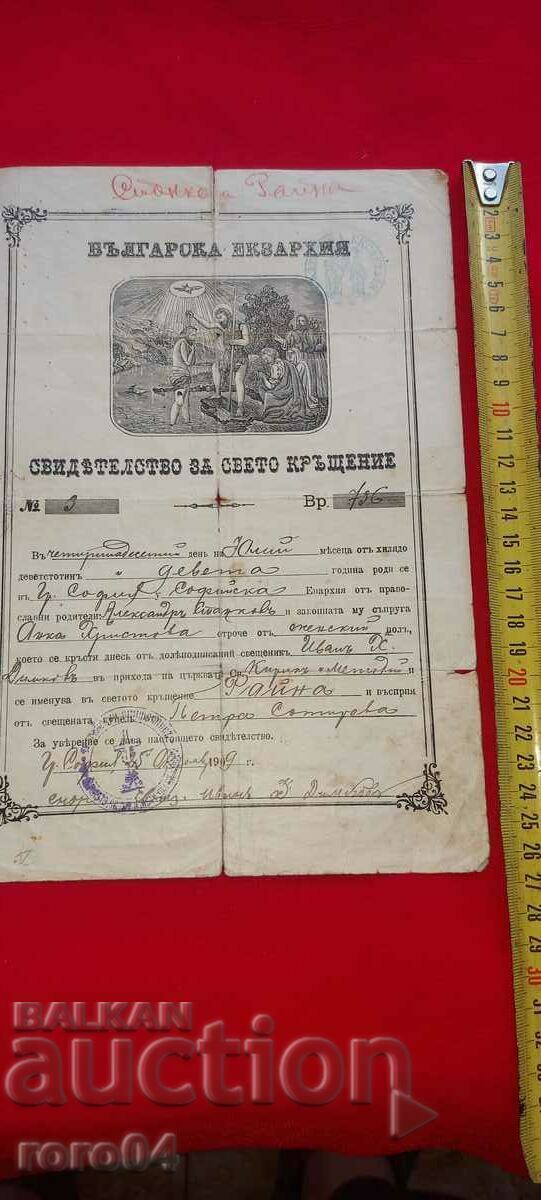 Райна
БЪЛГАРСКА ЕКЗАРХИЯ
СВИДѢТЕЛСТВО ЗА СВЕТО КРЪЩЕНИЕ
№ 3 Вр. 736
Въ четиринадесетий день на Юлий мѣсеца отъ хилядо
деветстотинъ и девета година роди се
въ гр. София, Софийска Епархия от право-
славни родители: Александръ и законната му съпруга
Христова строче отъ женский полъ,
което се кръсти днесь отъ долѣподписаний свещеникъ Иванъ Х.
въ прихода на църквата Св. Кирилъ и Методий и
се именува въ светото кръщение Райна и въсприя
отъ свещената купель Петра Сотирова
За увѣрение се дава настоящето свидѣтелство.
Гр. София 1909 г.
Иванъ Х.
BALKAN
auction
roro04
2 3 4 5 6 7 8 9 10 11 12 13 14 15 16 17 18 19 20 21 22 23 24 25 26 27 28 29 30 31 32 33 34